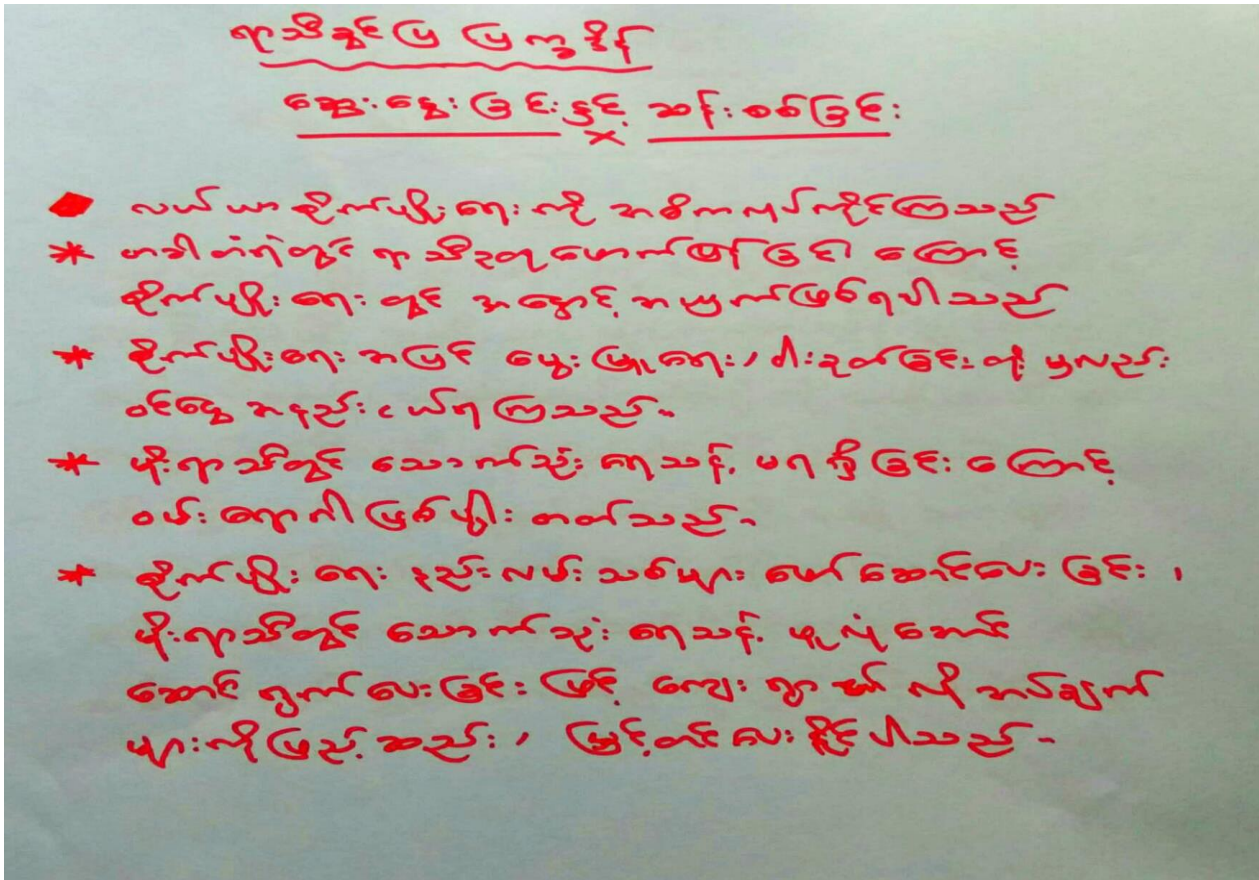 ရာသီခွင်ပြ ပြက္ခဒိန်
ဆွေးနွေးခြင်းနှင့် ဆန်းစစ်ခြင်း
လယ်ယာစိုက်ပျိုးရေးကို အဓိကလုပ်ကိုင်ကြသည်
* တခါတံရံတွင် ရာသီဥတုဖောက်ပြန်ခြင်း ကြောင့်
စိုက်ပျိုးရေးတွင် အနှောင့်အယှက်ဖြစ်ရပါသည်
* စိုက်ပျိုးရေးအပြင် မွေးမြူရေး၊ ဝါးခုတ်ခြင်းတို့မှလည်း
ဝင်ငွေအနည်းငယ်ရကြသည်။
* မိုးရာသီတွင် သောက်သုံးရေသန့် မရရှိခြင်းကြောင့်
ဝမ်းရောဂါဖြစ်ပွါးတတ်သည်။
* စိုက်ပျိုးရေး နည်းလမ်းသစ်များ ဖော်ဆောင်ပေးခြင်း၊
မိုးရာသီတွင် သောက်သုံးရေသန့် ရယူလုံအောင်
ဆောင်ရွက်ပေးခြင်းဖြင့် ကျေးရွာ၏ လိုအပ်ချက်
များကိုဖြည့်ဆည်း၊ မြှင့်တင်ပေးနိုင်ပါသည်။